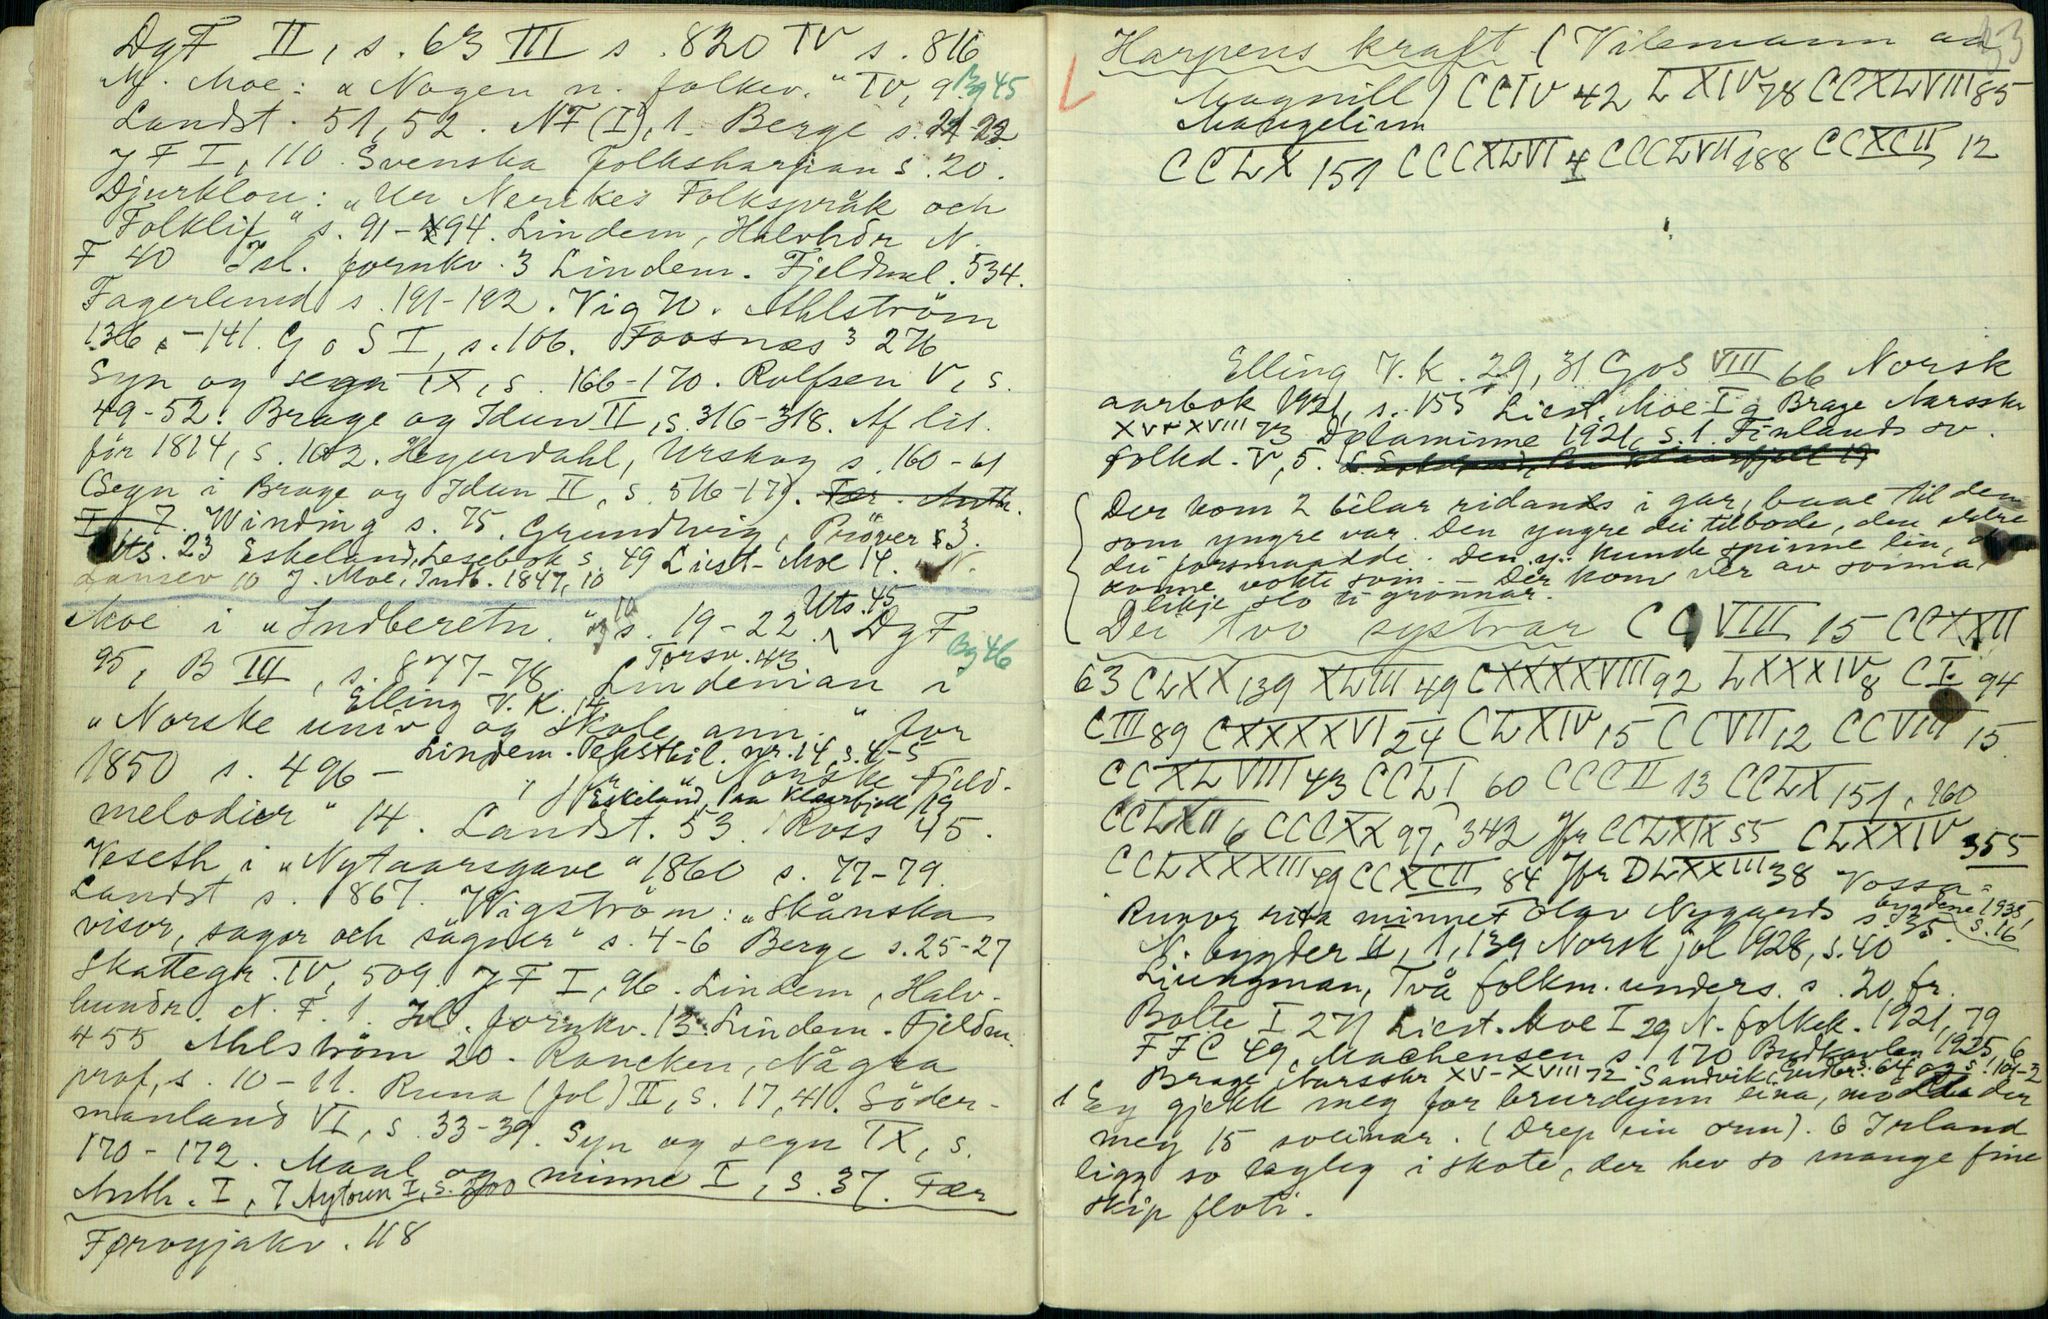 DgF II, s. 63 III s. 820 IV s. 816
M. Moe: "Nogen n. folkev." IV, 9. Bg 45
Landst. 51, 52. NF (I), 1. Berge s. 22-23
J F I, 110. Svenska folksharpan s. 20.
Djurklou: "Ur Nerikes Folkspråk och
Folklif" s. 91-94. Lindem, Halvhdr N.
F 40 Isl. fornkv. 3 Lindem. Fjeldmel. 534.
Fagerlund s. 191-192. Vig 70. Ahlström
136-141. G o S I, s. 106. Foosnæs 3 276
Syn og segn IX, s. 166-170. Rolfsen V, s.
49-52. Brage og Idun II, s. 316-318. Af lit.
för 1814, s. 162. Heyerdahl, Urskog s. 160-61
(Segn i Brage og Idun II, s. 516-17). Fær. Anth.
I, 7. Winding s. 75. Grundtvig, Prøver s 3.
Uts. 23 Eskeland, Lesebok s. 49 Liest-Moe 14. N.
Landev 10 J. Moe, Indb. 1847, 10
Moe i "Indberetn." og s. 19-22. Uts. 45 DgF
Torsv. 43 Bg 46
95, B III, s. 877-78. Lindeman i
Elling V. K. 14
"Norske univ. og skole ann." for
Lindem. Tekstbil. nr. 14, s. 4-5
1850 s. 496- "Norske Fjeld-
Eskeland, Paa Klaarfjell 19
melodier" 14. Landst. 53. Ross 45.
Veseth i "Nytaarsgave" 1860 s. 77-79.
Landst s. 867. Wigström: "Skånska
visor, sagor och sägner" s. 4-6 Berge s. 25-27
Skattegr. IV, 509. J F I, 96. Lindem, Halv-
hundr. N. F. 1. Isl. fornkv. 13. Lindem. Fjeldm.
455 Ahlström 20. Rancken, Några
prof, s. 10-11. Runa (fol) II, s. 17, 41. Söder-
manland VI, s. 33-39. Syn og segn IX, s.
170-172. Maal og minne I, s. 37. Fær
Anth. I, 7 Aytoun I, s. 200
Føroyjakv. 118
33
Harpens kraft (Vilemann aa
Magnill) CCIV 42 LXIV 78 CCXLVIII 85
Mangelim
CCLX 151 CCCXLVI 4 CCCLVII 188 CCXCII 12
Elling V. K. 29, 31 GoS VIII 66 Norsk
aarbok 1921, s. 155 Liest. Moe I 9 Brage Aarsskr
XV-XVIII 73 Dølaminne 1921, s. 1. Finlands sv.
folkd. V, 5.
Der kom 2 bilar ridands i gar, baae til den
som yngre var. Den yngre dei tilbode, den eldre
dei forsmaadde. Den y. kunde spinne lin, d
konne vokte svin. - Der kom ver av sonna,
likje slo ti gronnar.
Dei tvo systrar CCVIII 15 CCXXII
63 CLXX 139 XLIII 49 CXXXXVIII 92 LXXXIV 8 CI 94
CIII 89 CXXXXVI 24 CLXIV 15 CCVII 12 CCVIII 15
CCXLVIII 43 CCLI 60 CCCII 13 CCLX 151, 160
CCLXII 6 CCCXX 97, 342 Jfr CCLXIX 55 CLXXIV 355
CCLXXXIII 49 CCXCII 84 Jfr DLXXIII 38 Vossa-
bygdene 1935, s. 16
Runor rita minnet Olav Nygards s. 35.
N. bygder II, 1, 139 Norsk jol 1928, s. 40
Liungman, Två folkm. unders. s. 20 fr.
Bolte I 271 Liest. Moe I 29 N. folkek. 1921, 79
FFC 49, Machensen s. 170 Budkavlen 1925, 6
Brage Aarsskr XV-XVIII 72. Sandvik, Østerd. 64 og s. 101-2
1 Eg gjekk meg for brurdynn eina, møtte der
meg 15 sveinar. (Drep ein orm). 6 Irland
ligg so lagleg i skote, der hev so mange fine
skip floti.